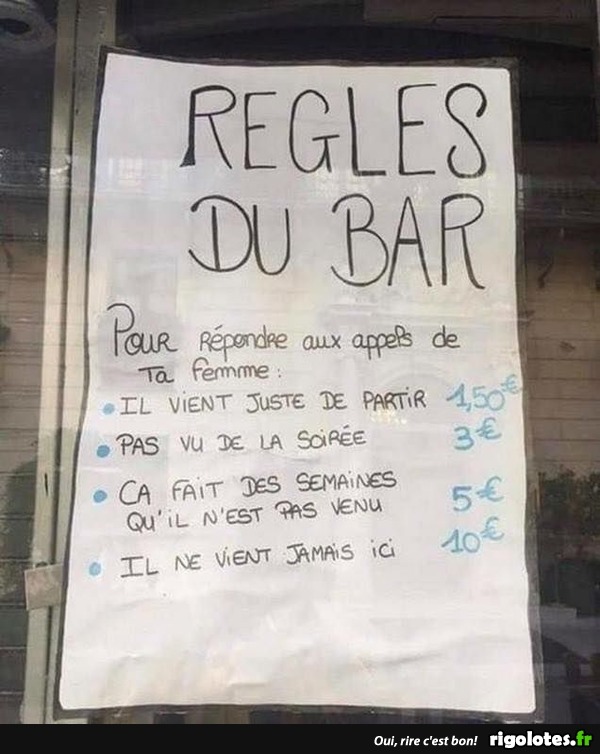 REGLES
DU BAR
Pour Répondre aux appels de
Ta femme :
• IL VIENT JUSTE DE PARTIR 1,50€
• PAS VU DE LA SOIRÉE 3€
• CA FAIT DES SEMAINES
QU'IL N'EST PAS VENU 5€
• IL NE VIENT JAMAIS ici 10€
Oui, rire c'est bon! rigolotes.fr